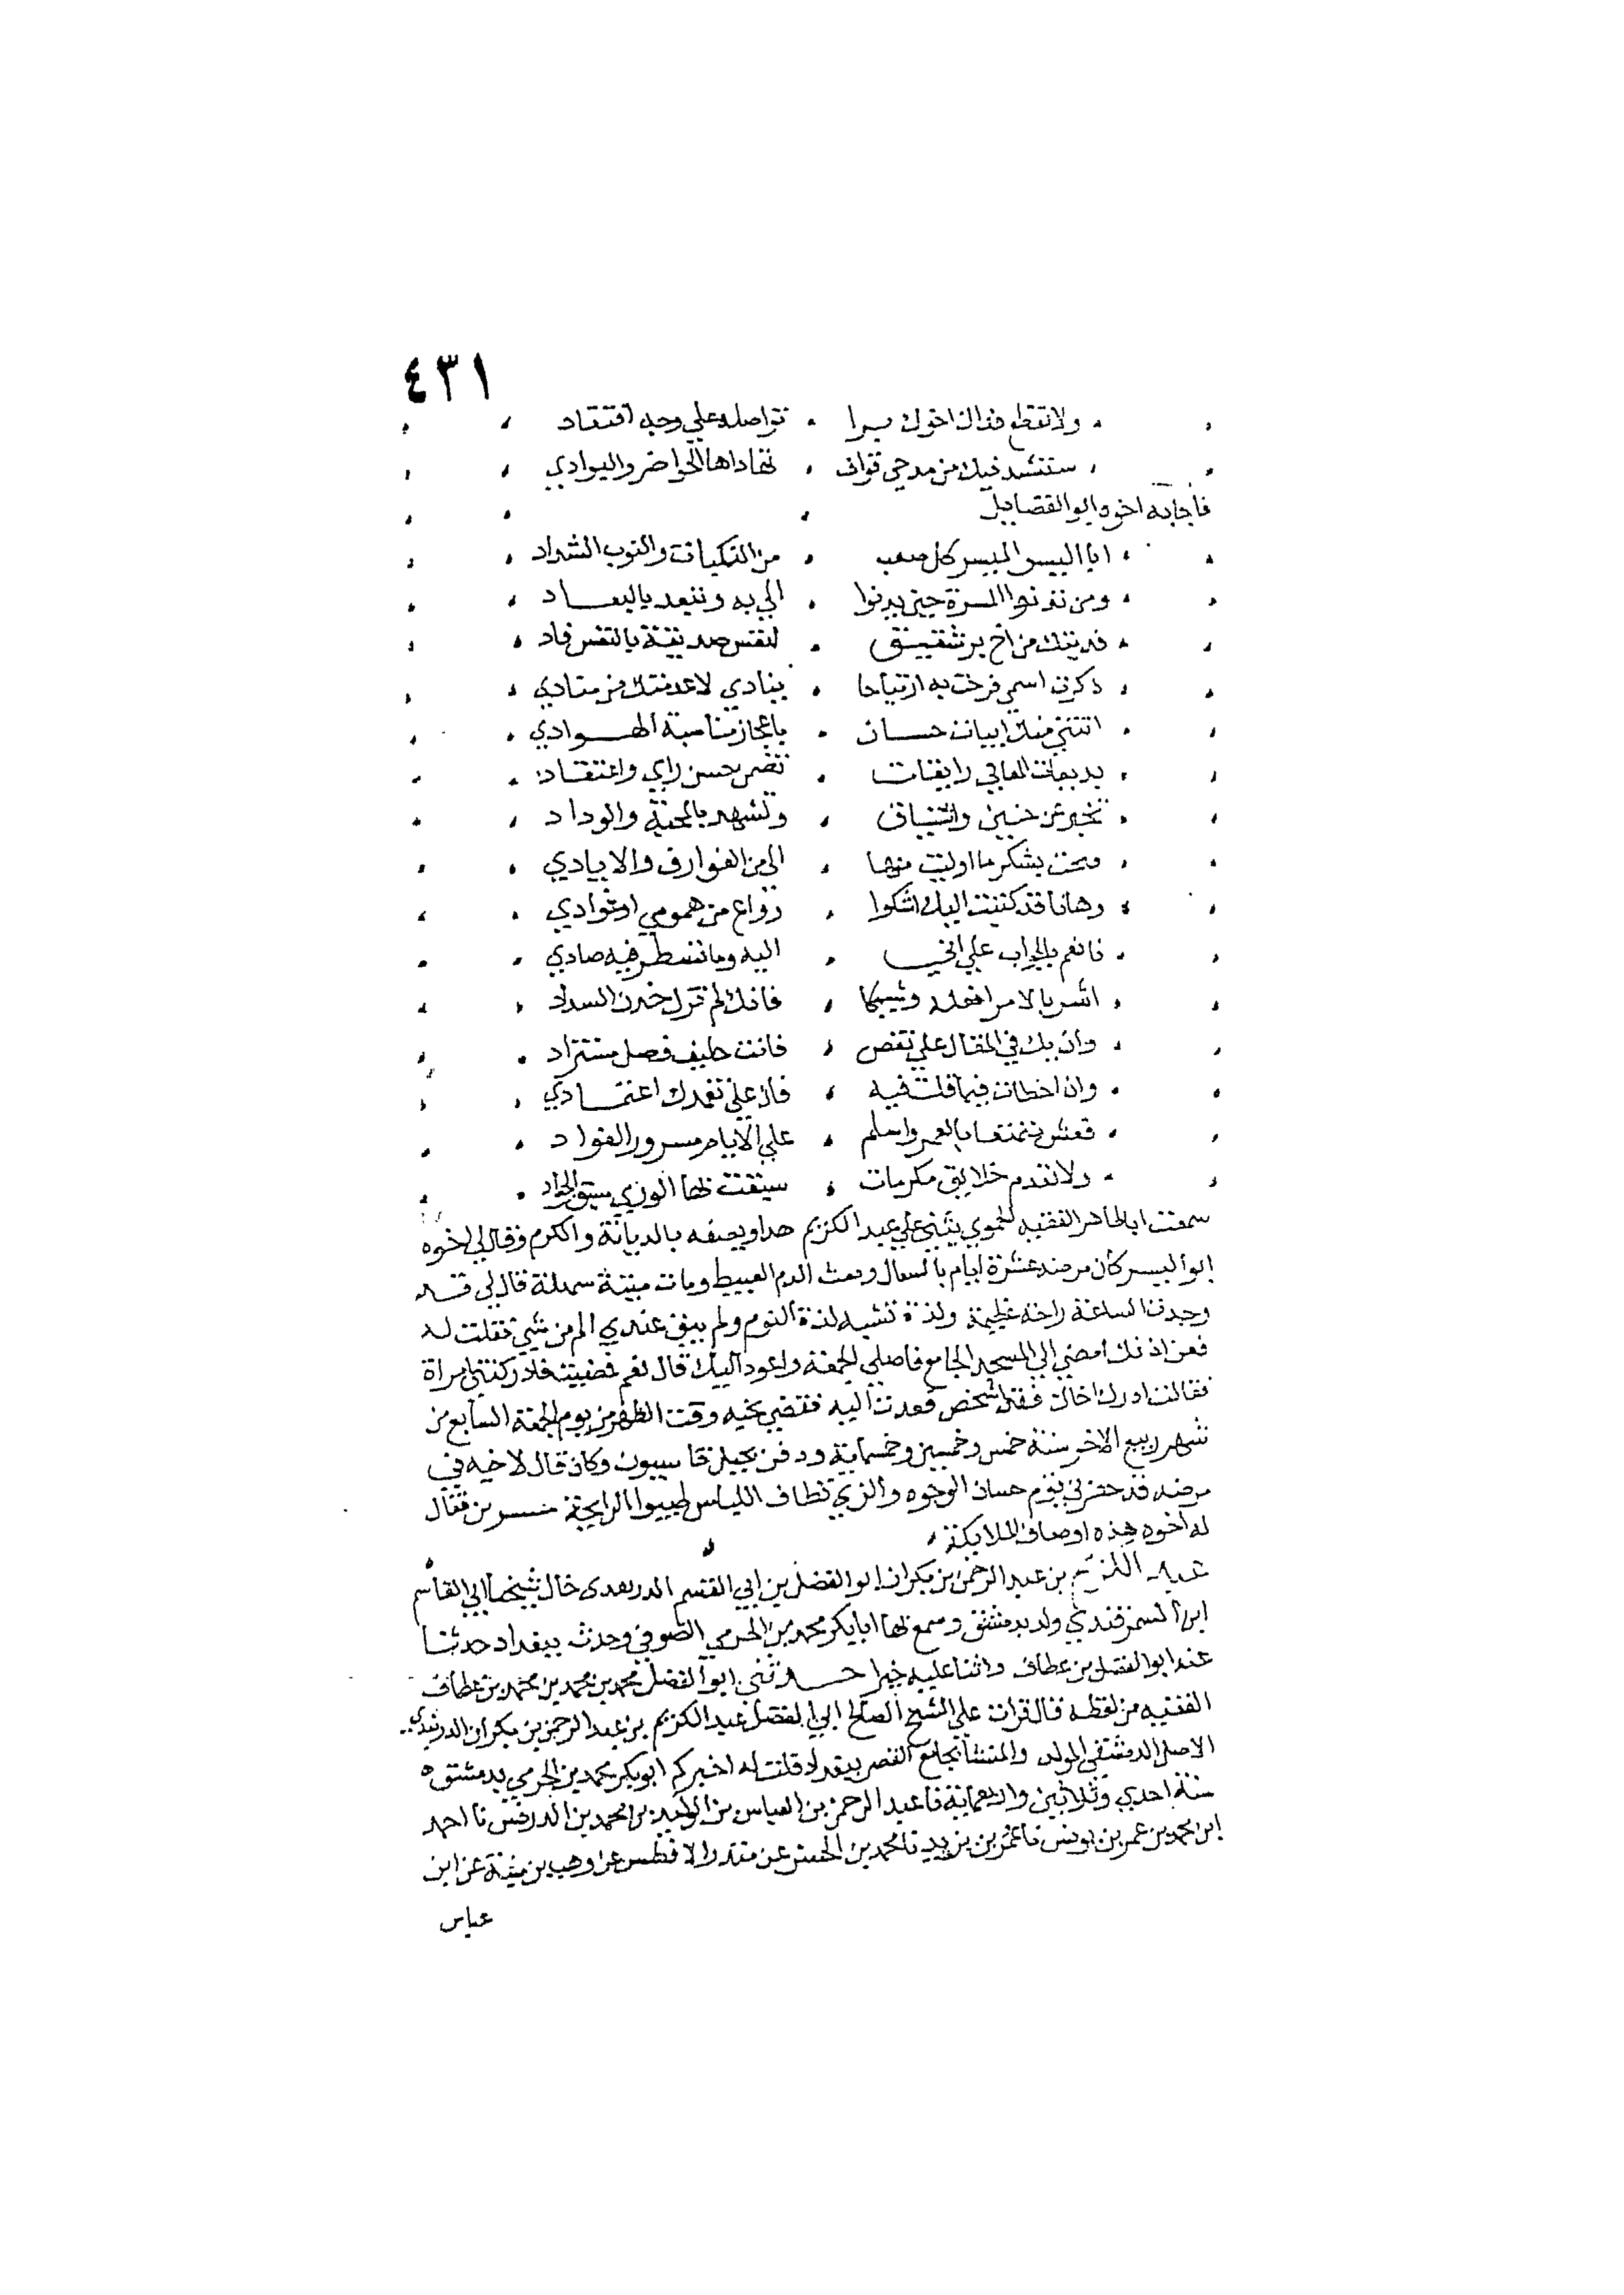 ٤٣١
ولا تقطع فداك اخوك برا ، تواصله علي وجه افتقاد
ستنشد فيك من مدحي قواف ، تهاداها الحواضر والبوادي
فاجابه اخوه ابو الفضايل
ابا اليسر الميسر كل صعب ، من النكبات والنوب الشداد
ومن تدنوا المسرة حين يدنوا ، الي به وتبعد بالبعاد
فديتك من اخ بر شقيق ، لنفس صديقه بالنفس فاد
ذكرت اسمي فرحت به ارتياحا ، ينادي لا عدمتك من منادي
اتتني منك ابيات حسان ، باعجاز مناسبة الهوادي
بديعات المعاني رايقات ، تضمن حسن راي واعتقاد
تخبر عن حنين واشتياق ، وتشهد بالمحبة والوداد
وبحت بشكر ما اوليت منها ، الي من العوارف والايادي
وها انا قد كتبت اليك اشكوا ، دواع من همومي او عوادي
فانعم بالجواب علي اني ، اليه وما تسطر فيه صادي
اشر بالامر افعله وشيكا ، فانك لم تزل خدن السداد
وان يك في المقال علي نقص ، فانت حليف فضل مستزاد
وان اخطات فيما قلت فيه ، فان علي تغمدك اعتمادي
فعش متمتعا بالعمر واسلم ، علي الايام مسرور الفواد
ولا تعدم خلايق مكرمات ، سبقت بها الوري سبق الجواد
سمعت ابا طاهر الفقيه الحموي يثني علي عبد الكريم هدا ويصفه بالديانة والكرم وقال لي اخوه
ابو اليسر كان مرضه عشرة ايام بالسعال ونفث الدم العبيط ومات ميتة سهلة قال لي قد
وجدت الساعة راحة عظيمة ولذة تشبه لذة النوم ولم يبق عندي الم من شي فقلت له
فعن اذنك امضي الي المسجد الجامع فاصلي الجمعة واعود اليك قال نعم فمضيت فادركتني امراة
فقالت ادرك اخاك فقد شخص فعدت اليه فقضي نحبه وقت الظهر من يوم الجمعة السابع من
شهر ربيع الاخر سنة خمس وخمسين وخمسماية ودفن بجبل قاسيون وكان قال لاخيه في
مرضه قد حضرني قوم حسان الوجوه والزي نظاف اللباس طيبوا الرايحة فقال
له اخوه هذه اوصاف الملايكة
عبد الكريم بن عبد الرحمن بن بكران ابو الفضل بن ابي القسم الدربندي خال شيخنا ابي القاسم
ابن السمرقندي ولد بدمشق وسمع بها ابا بكر محمد بن الحرمي الصوفي وحدث ببغداد حدثنا
عنه ابو الفضل بن عطاف واثنا عليه خيرا حدثني ابو الفضل محمد بن محمد بن محمد بن عطاف
الفقيه من لفظه قال قرات علي الشيخ الصالح ابي الفضل عبد الكريم بن عبد الرحمن بن بكران الدربندي
الاصل الدمشقي المولد والمنشا بجامع القصر ببغداد قلت له اخبركم ابو بكر محمد بن الحرمي بدمشق
سنة احدي وثلاثين واربعماية نا عبد الرحمن بن العباس بن الوليد بن محمد بن الدرفس نا احمد
ابن محمد بن عمر بن يونس نا عمر بن يزيد نا محمد بن الحسن عن منذر الافطس عن وهب بن منبه عن ابن
عباس